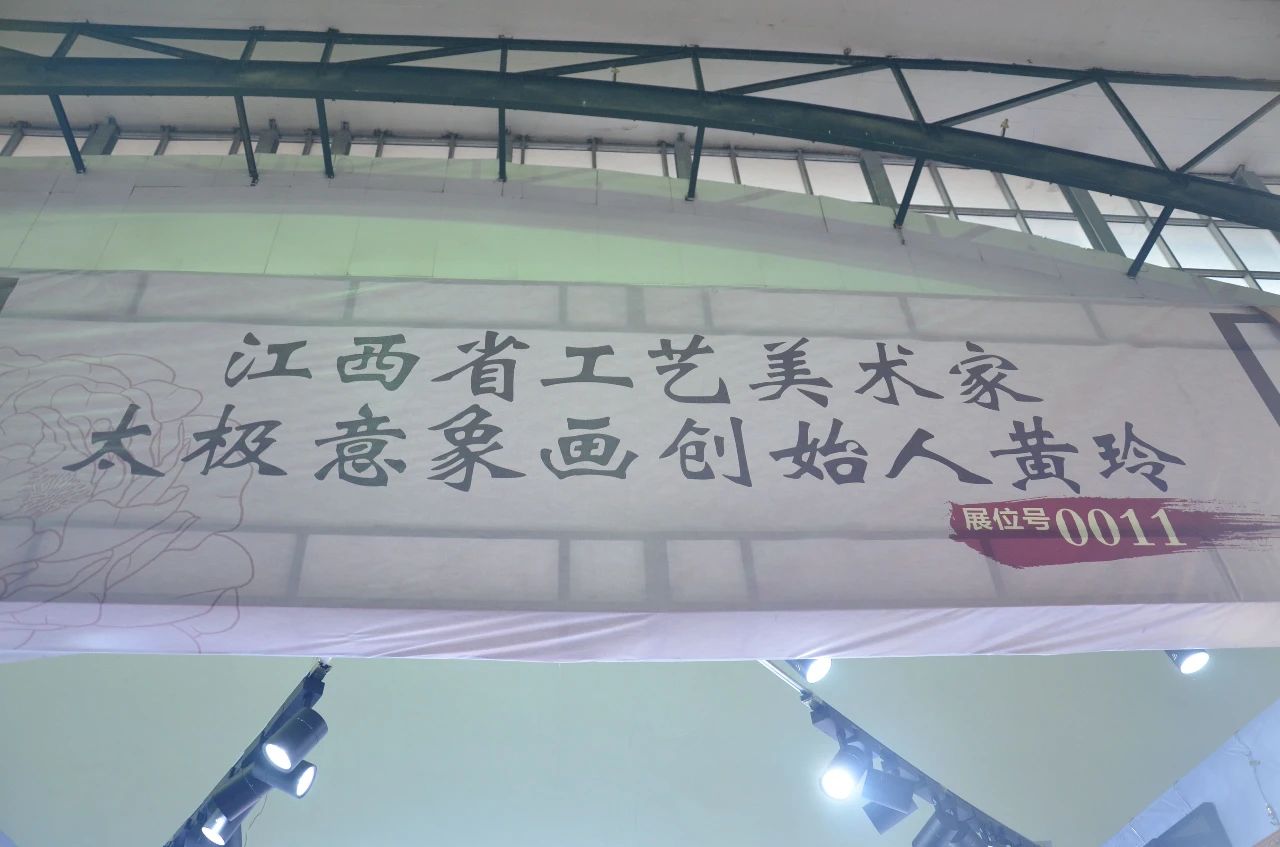 江西省工艺美术家
太极意象画创始人黄玲
展位号0011